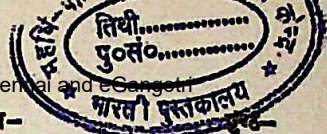 महर्षि
तिथी..................
पु०सं०..................
ennai and eGangotri
भारती पुस्तकालय